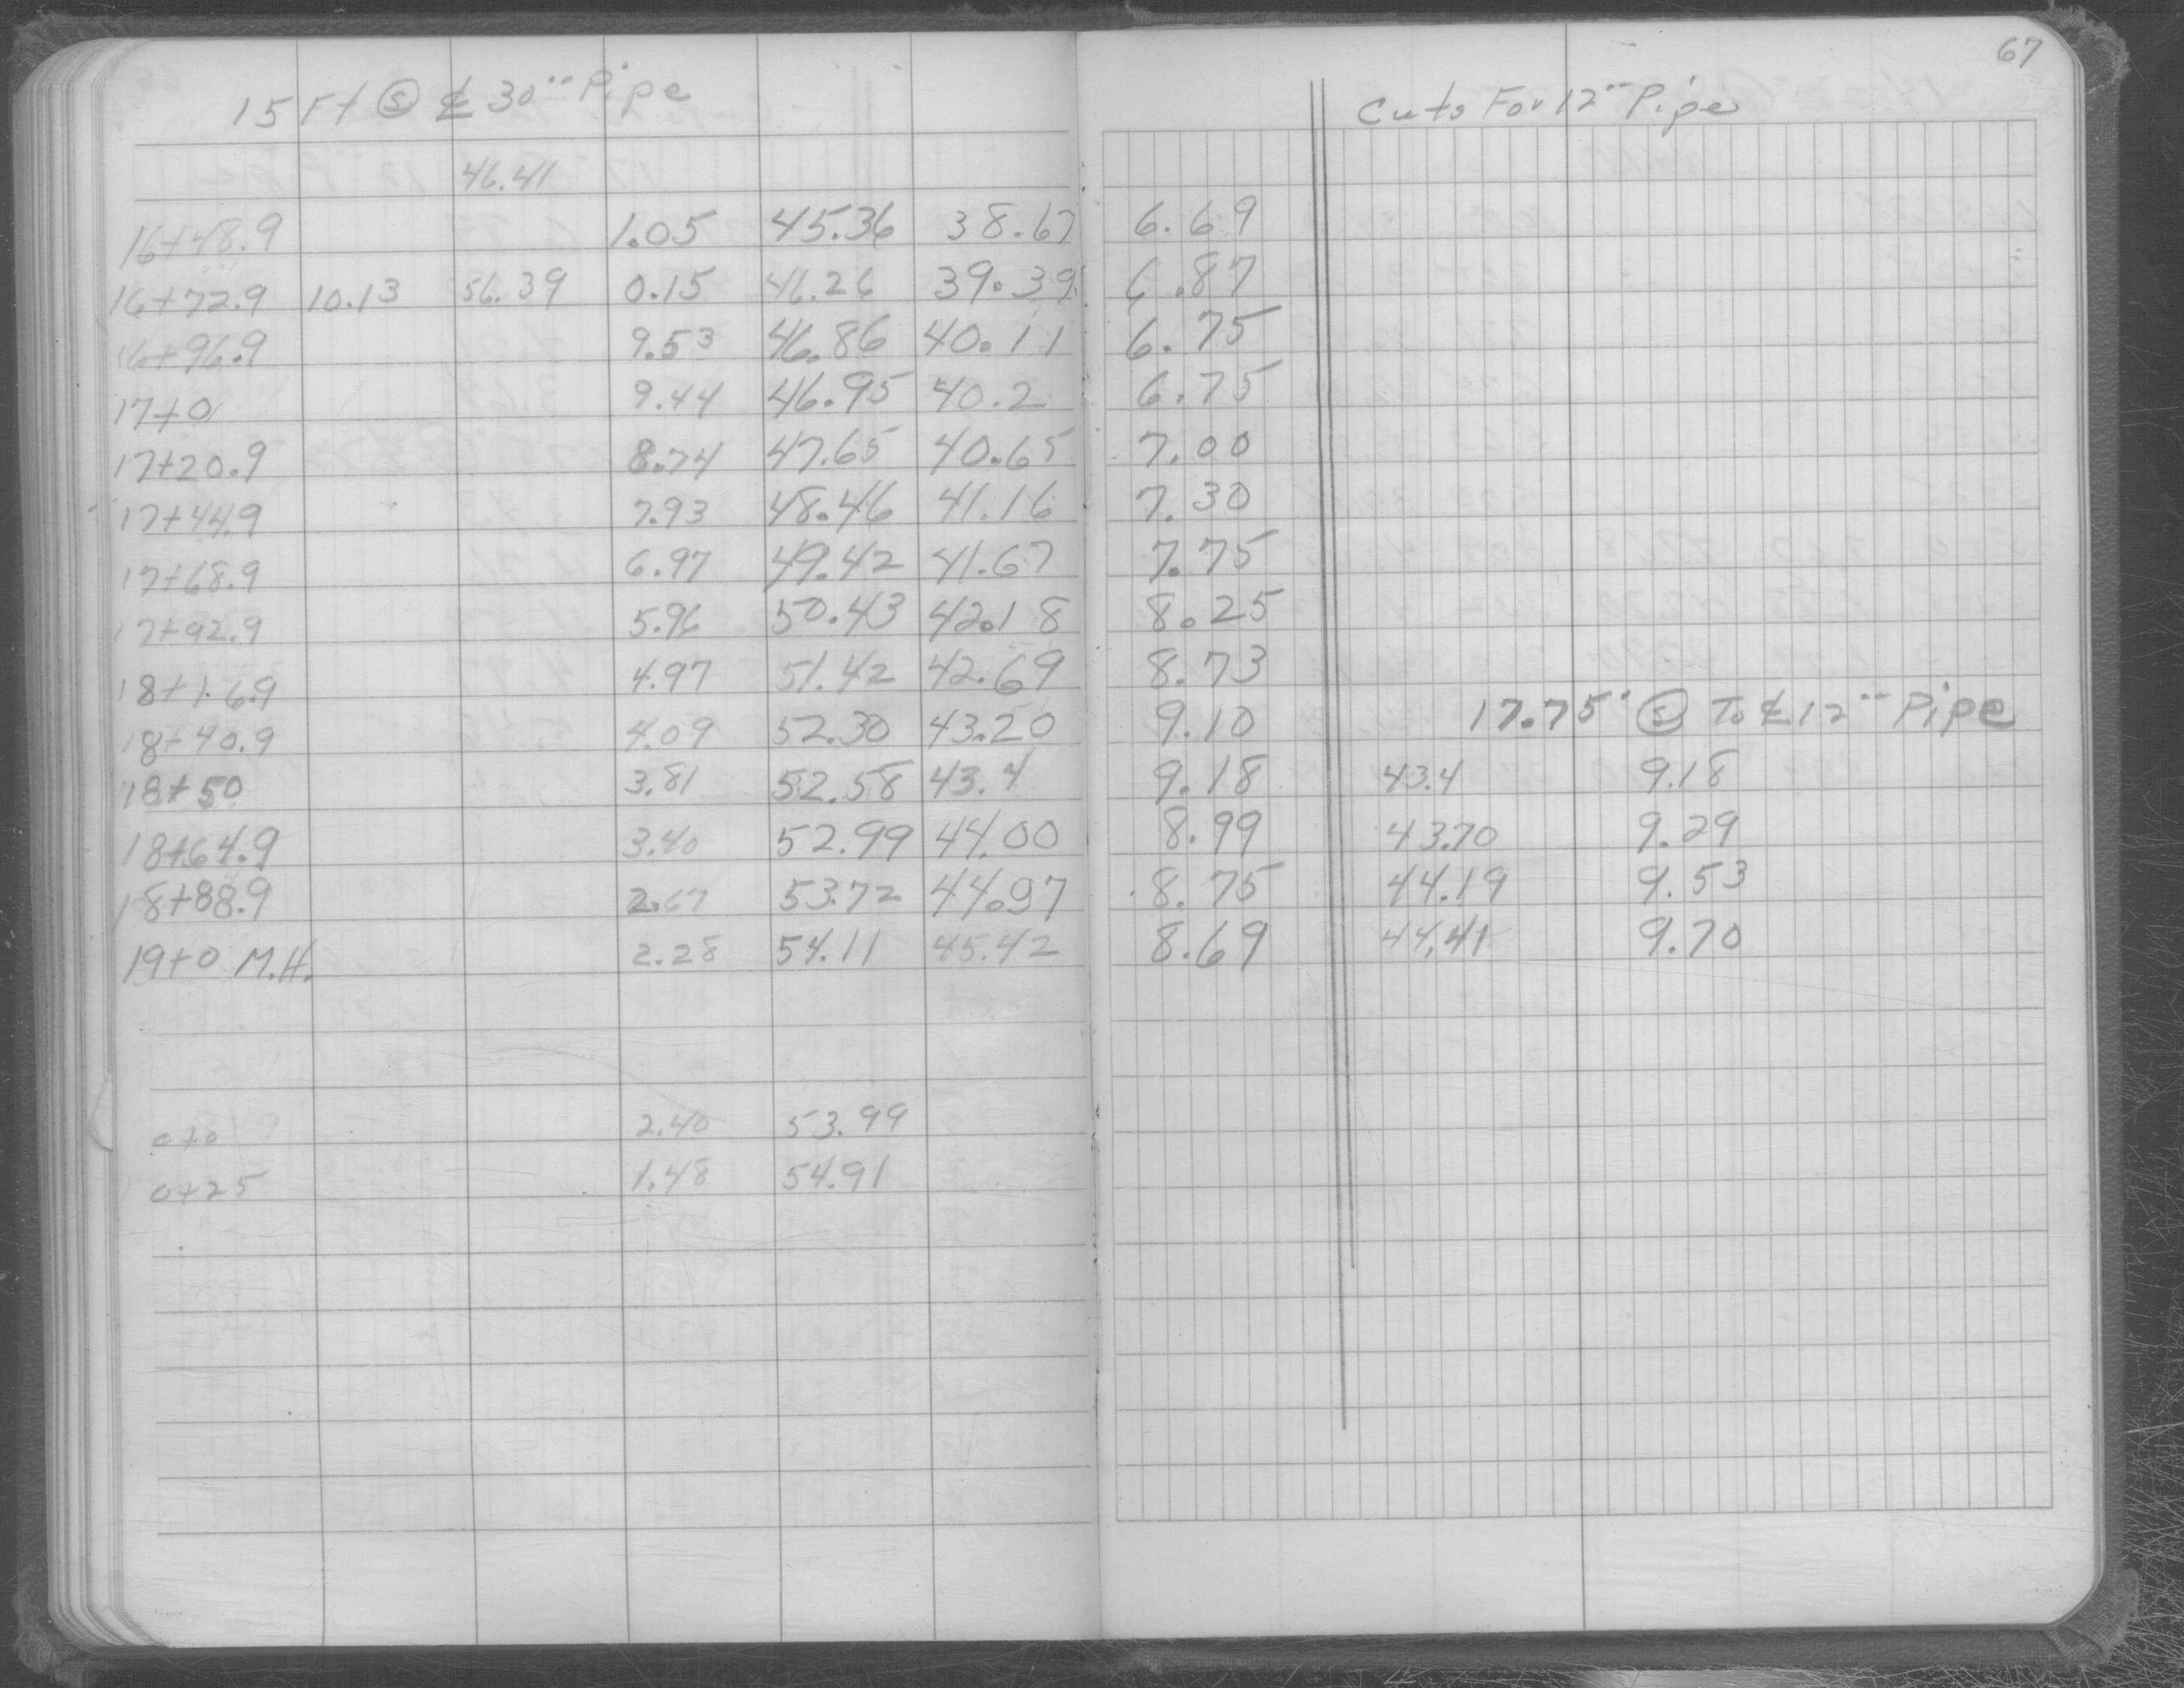 67
15 Ft Ⓢ ℄ 30" Pipe
Cuts For 12" Pipe
46.41
16+48.9 1.05 45.36 38.67 6.69
16+72.9 10.13 56.39 0.15 46.26 39.39 6.87
16+96.9 9.53 46.86 40.11 6.75
17+0 9.44 46.95 40.2 6.75
17+20.9 8.74 47.65 40.65 7.00
17+44.9 7.93 48.46 41.16 7.30
17+68.9 6.97 49.42 41.67 7.75
17+92.9 5.96 50.43 42.18 8.25
18+16.9 4.97 51.42 42.69 8.73
18+40.9 4.09 52.30 43.20 9.10 17.75' Ⓢ To ℄ 12" Pipe
18+50 3.81 52.58 43.4 9.18 43.4 9.18
18+64.9 3.40 52.99 44.00 8.99 43.70 9.29
18+88.9 2.67 53.72 44.97 8.75 44.19 9.53
19+0 M.H. 2.28 54.11 45.42 8.69 44.41 9.70
0+0 2.40 53.99
0+25 1.48 54.91